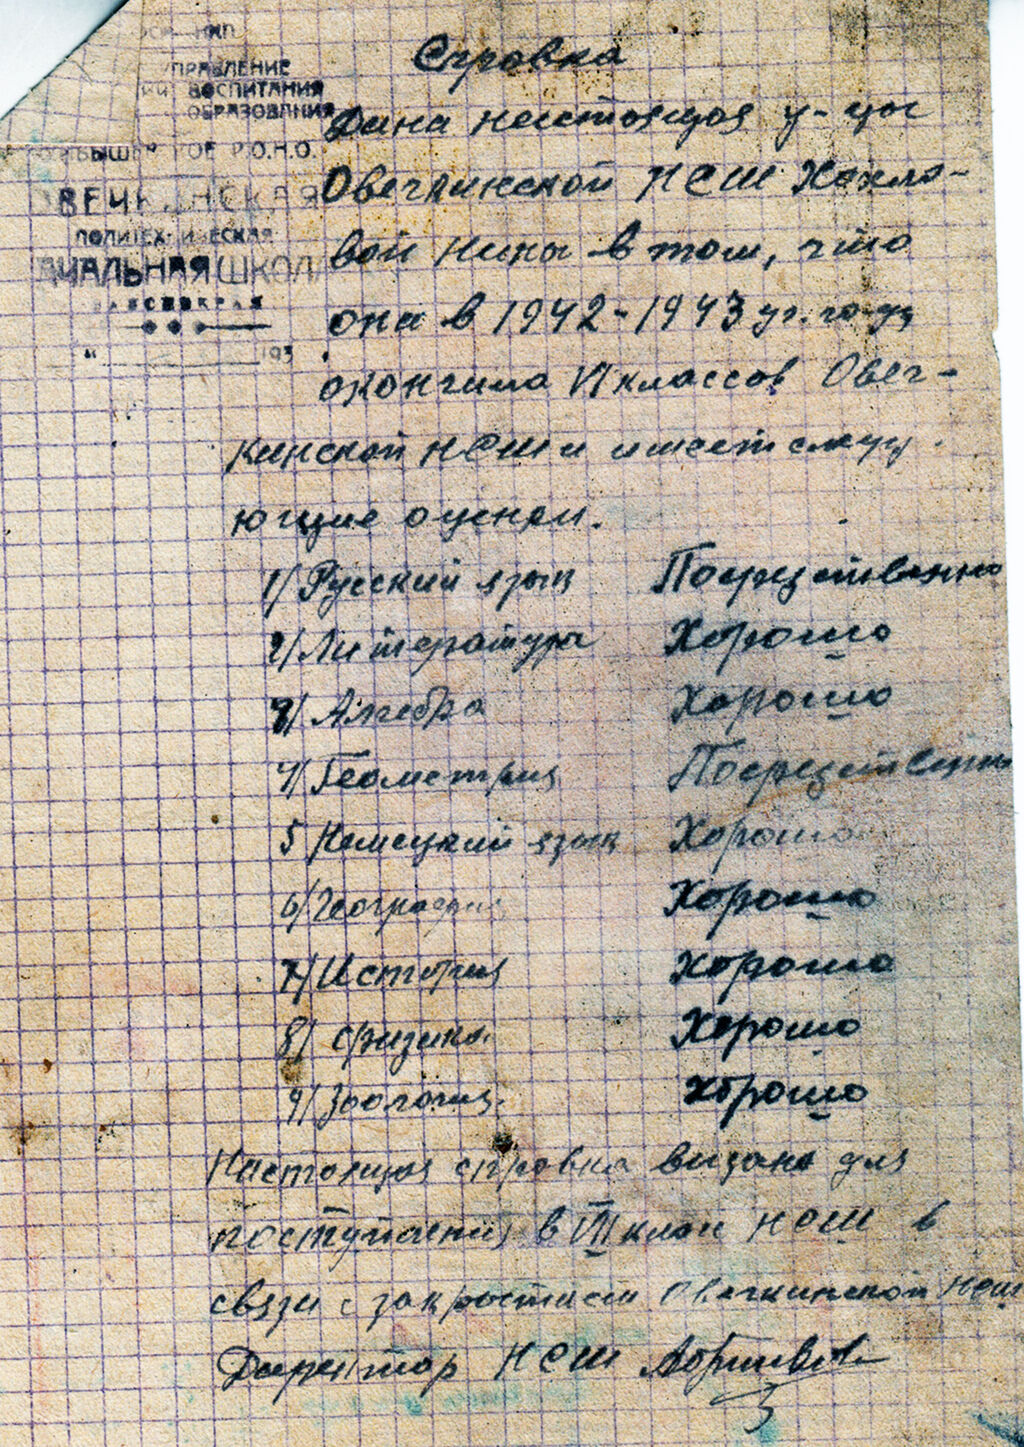 УПРАВЛЕНИЕ
ВОСПИТАНИЯ
ОБРАЗОВАНИЯ
Р.О.Н.О.
ПОЛИТЕХНИЧЕСКАЯ
АЧАЛЬНАЯ ШКОЛ
193
Справка
Дана настоящая у-цы
Овечкинской НСШ Хохло-
вой Нины в том, что
она в 1942-1943 уг. году
окончила VI классов Овеч-
кинской НСШ и имеет следу
ющие оценки.
1/ Русский язык Посредственно
2/ Литература Хорошо
3/ Алгебра Хорошо
4/ Геометрия Посредственно
5 Немецкий язык Хорошо
6/ География Хорошо
7/ История Хорошо
8/ Физика Хорошо
9/ Зоология Хорошо
Настоящая справка выдана для
поступления в VII класс НСШ в
связи с закрытием Овечкинской НСШ
Директор НСШ